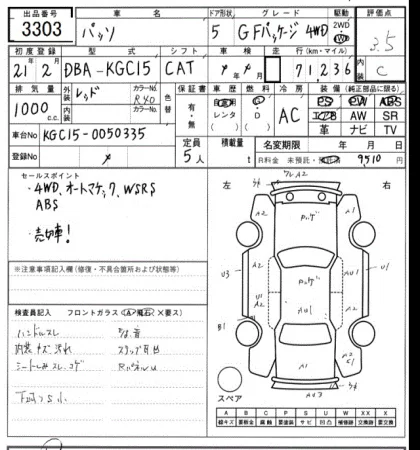 出品番号 車名 ドア形状 グレード 駆動 評価点
3303 パッソ 5 GFパッケージ 4WD 2WD 3.5
初度登録 型式 シフト 車検 走行(km・マイル) 内装
21年2月 DBA-KGC15 CAT 年 月 71,236 C
排気量 外装 レッド カラーNo. R40 色替 保証書 車歴 燃料 冷房 装備(純正部品に限る)
1000c.c. 内装 カラーNo. 有・無 自家用 レンタ G D AC PS PW ABS
エアB AW SR
革 ナビ TV
車台No KGC15-0050335 定員 5人 積載量 t 名変期限 年 月 日
登録No R料金 未預託・預託済 9510円
セールスポイント
・4WD、オートマチック、WSRS
ABS
・売切車!
※注意事項記入欄(修復・不具合箇所および状態等)
検査員記入 フロントガラス(A・飛石・X要ス)
ハンドルスレ
内装キズ汚れ
シートしみスレコゲ
下回りS小
左 右
A2
A2 A1
U3 A2 AU1 U1
U1 A2
AU1
B1 A2
A1
スペア
A B C P S U W X XX